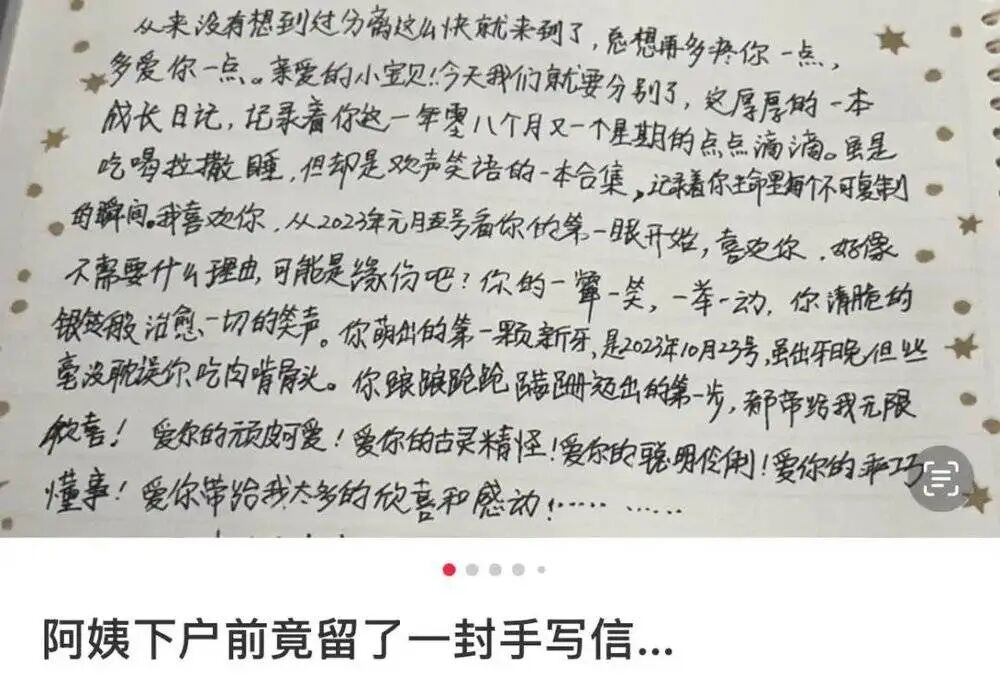 从来没有想到过分离这么快就来到了，总想再多疼你一点，
多爱你一点。亲爱的小宝贝!!今天我们就要分别了，这厚厚的一本
成长日记，记录着你这一年零八个月又一个星期的点点滴滴。虽是
吃喝拉撒睡，但却是欢声笑语的一本合集，记录着你生命里每个不可复制
的瞬间。我喜欢你，从2023年元月五号看你的第一眼开始，喜欢你，好像
不需要什么理由，可能是缘份吧？你的一颦一笑，一举一动，你清脆的
银铃般治愈一切的笑声。你萌出的第一颗新牙，是2023年10月23号，虽出牙晚，但丝
毫没耽误你吃肉啃骨头。你踉踉跄跄蹒跚迈出的第一步，都带给我无限
欣喜！爱你的顽皮可爱！爱你的古灵精怪！爱你的聪明伶俐！爱你的乖巧
懂事！爱你带给我太多的欣喜和感动！…… ……
阿姨下户前竟留了一封手写信...